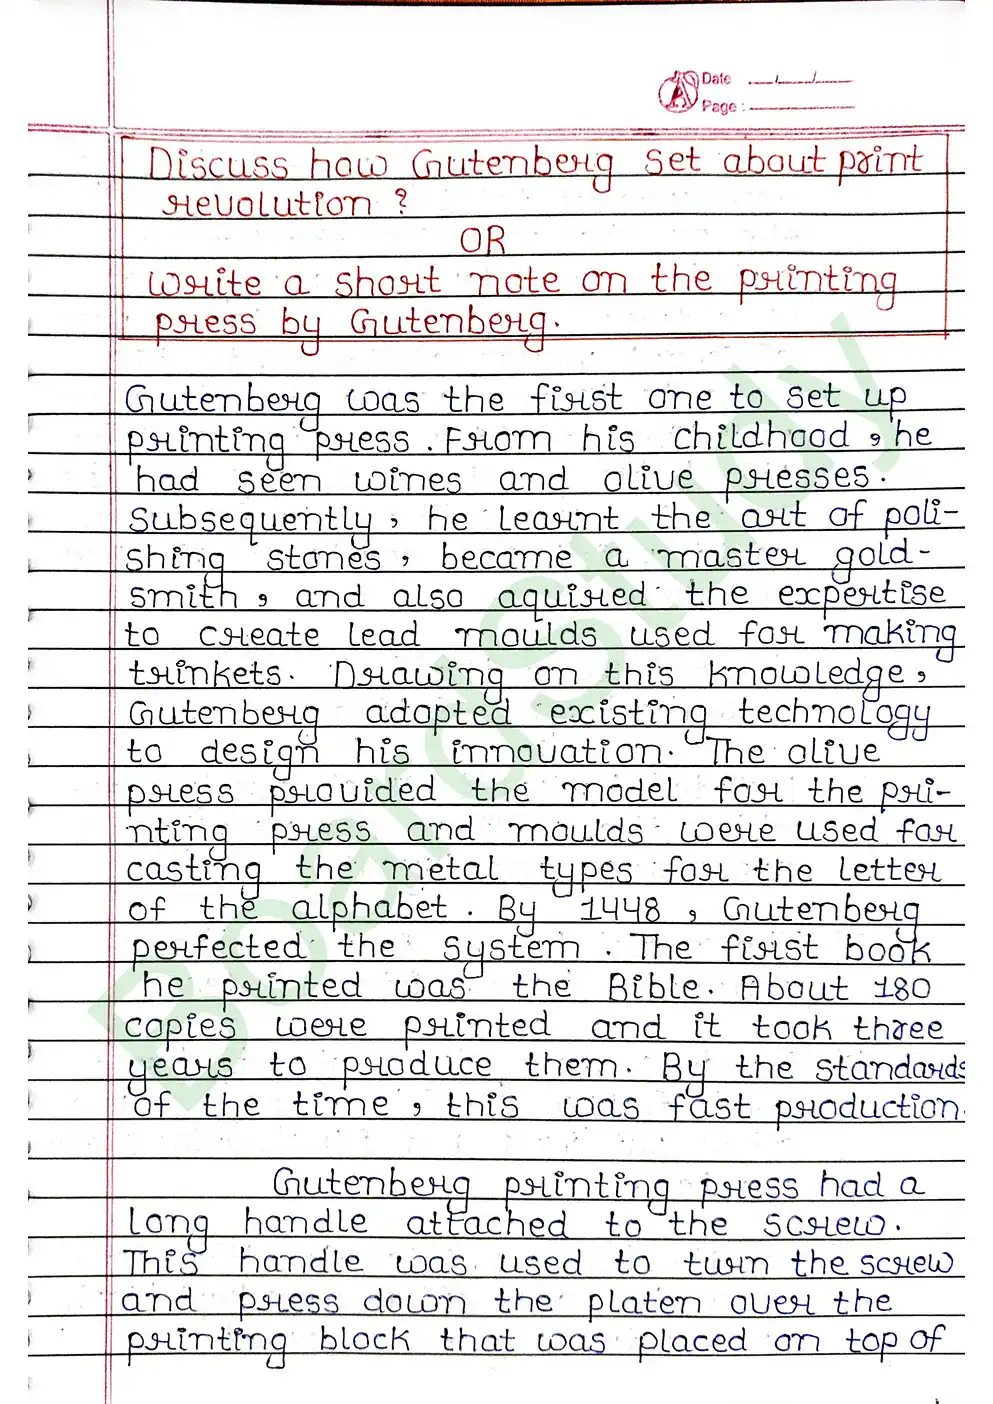 Date
Page :
Discuss how Gutenberg set about print
revolution ?
OR
Write a short note on the printing
press by Gutenberg.
Gutenberg was the first one to set up
printing press. From his childhood, he
had seen wines and olive presses.
Subsequently, he learnt the art of poli-
shing stones, became a master gold-
smith, and also aquired the expertise
to create lead moulds used for making
trinkets. Drawing on this knowledge,
Gutenberg adopted existing technology
to design his innovation. The olive
press provided the model for the pri-
nting press and moulds were used for
casting the metal types for the letter
of the alphabet. By 1448, Gutenberg
perfected the system. The first book
he printed was the Bible. About 180
copies were printed and it took three
years to produce them. By the standards
of the time, this was fast production.
Gutenberg printing press had a
long handle attached to the screw.
This handle was used to turn the screw
and press down the platen over the
printing block that was placed on top of
BoardStudy